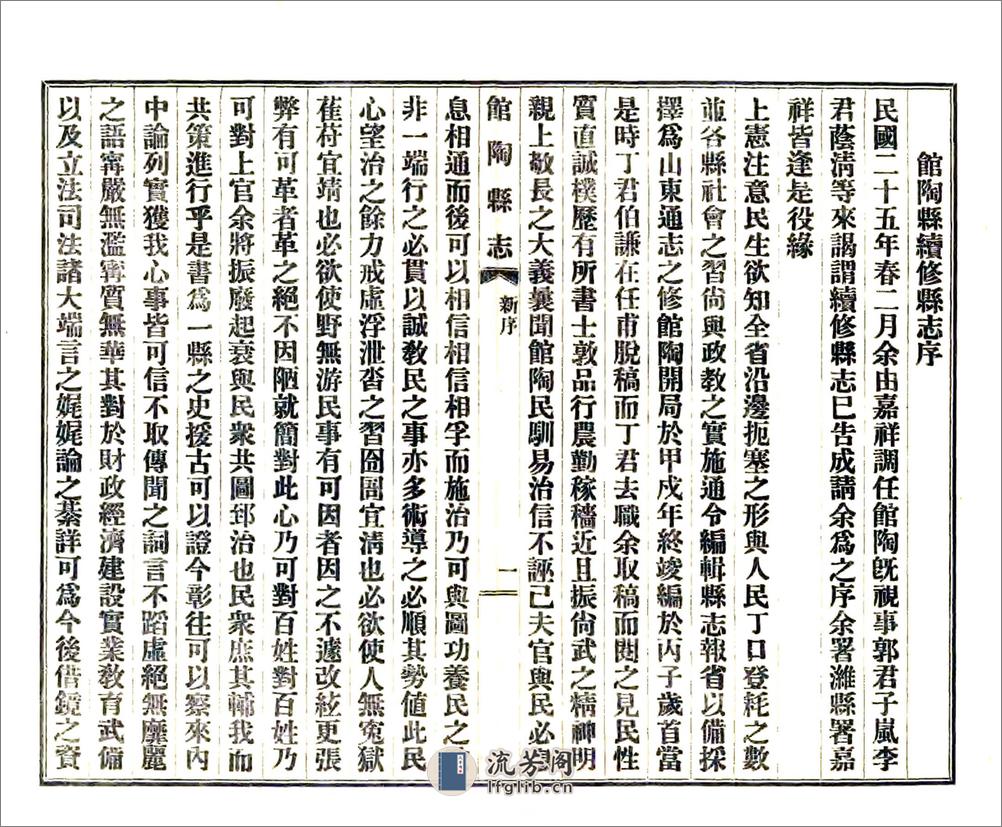 館陶縣續修縣志序
民國二十五年春二月余由嘉祥調任館陶旣視事郭君子嵐李
君蔭淸等來謁謂續修縣志已告成請余爲之序余署濰縣署嘉
祥皆逢是役緣
上憲注意民生欲知全省沿邊扼塞之形與人民丁口登耗之數
並各縣社會之習尙與政教之實施通令編輯縣志報省以備採
擇爲山東通志之修館陶開局於甲戌年終竣編於丙子歲首當
是時丁君伯謙在任甫脫稿而丁君去職余取稿而閱之見民性
質直誠樸歷有所書士敦品行農勤稼穡近且振尙武之精神明
親上敬長之大義曩聞館陶民馴易治信不誣已夫官與民必
館陶縣志
新序
一
息相通而後可以相信相信相孚而施治乃可與圖功養民之
非一端行之必貫以誠教民之事亦多術導之必順其勢値此民
心望治之餘力戒虛浮泄沓之習囹圄宜淸也必欲使人無冤獄
萑苻宜靖也必欲使野無游民事有可因者因之不遽改絃更張
弊有可革者革之絕不因陋就簡對此心乃可對百姓對百姓乃
可對上官余將振廢起衰與民衆共圖郅治也民衆庶其輔我而
共策進行乎是書爲一縣之史援古可以證今彰往可以察來內
中論列實獲我心事皆可信不取傳聞之詞言不蹈虛絕無靡麗
之語甯嚴無濫甯質無華其對於財政經濟建設實業教育武備
以及立法司法諸大端言之娓娓論之綦詳可爲今後借鏡之資
流芳閣
lfglib.cn